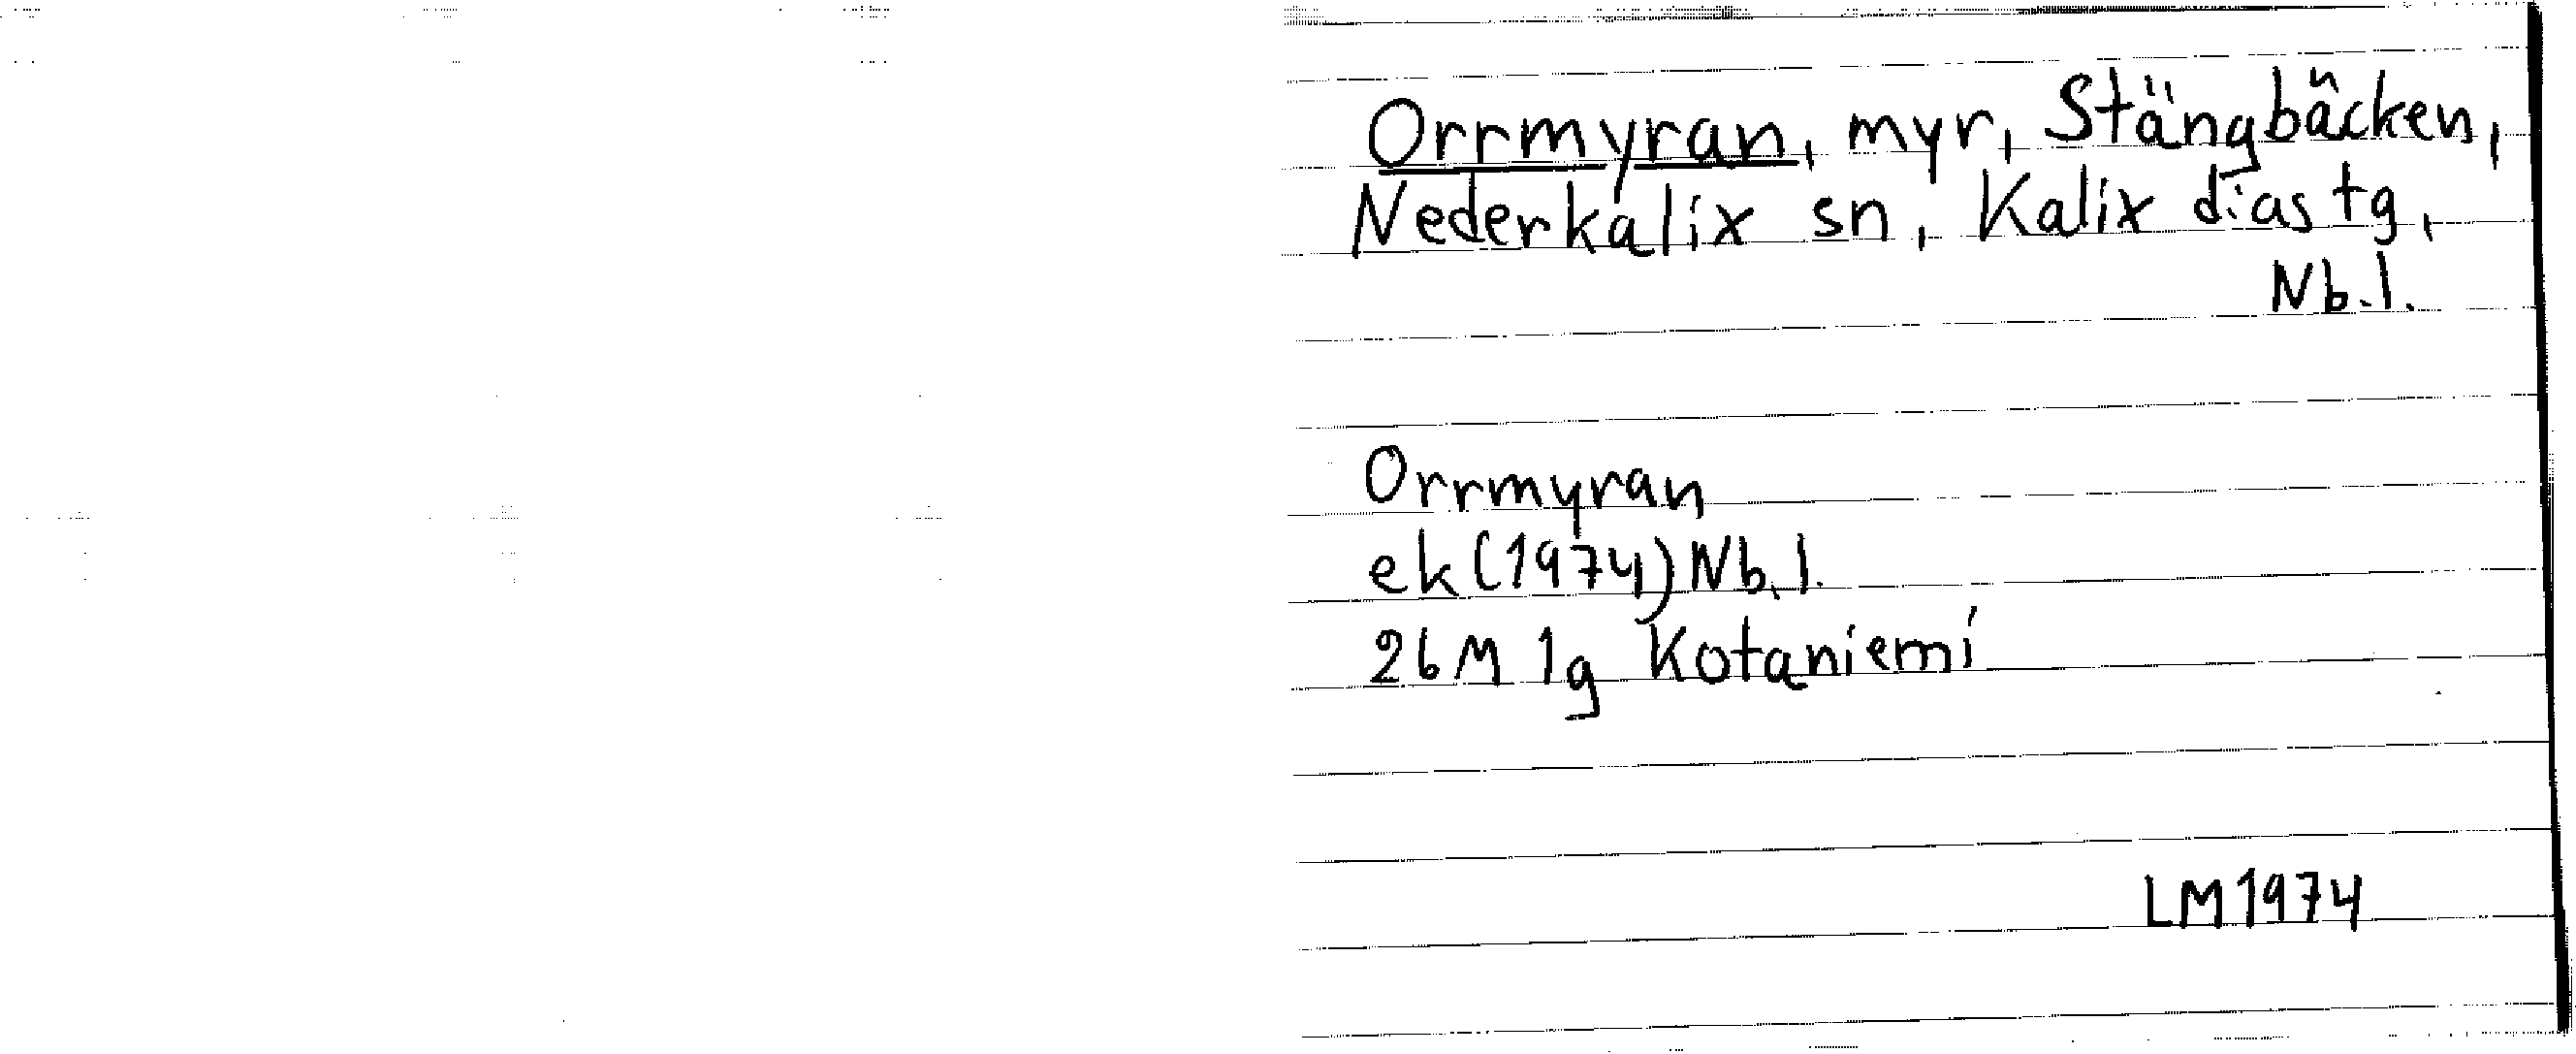 Orrmyran, myr, Stängbäcken,
Nederkalix sn, Kalix diastg,
Nb.l.
Orrmyran
ek (1974) Nb.l.
26M 1g Kotaniemi
LM 1974